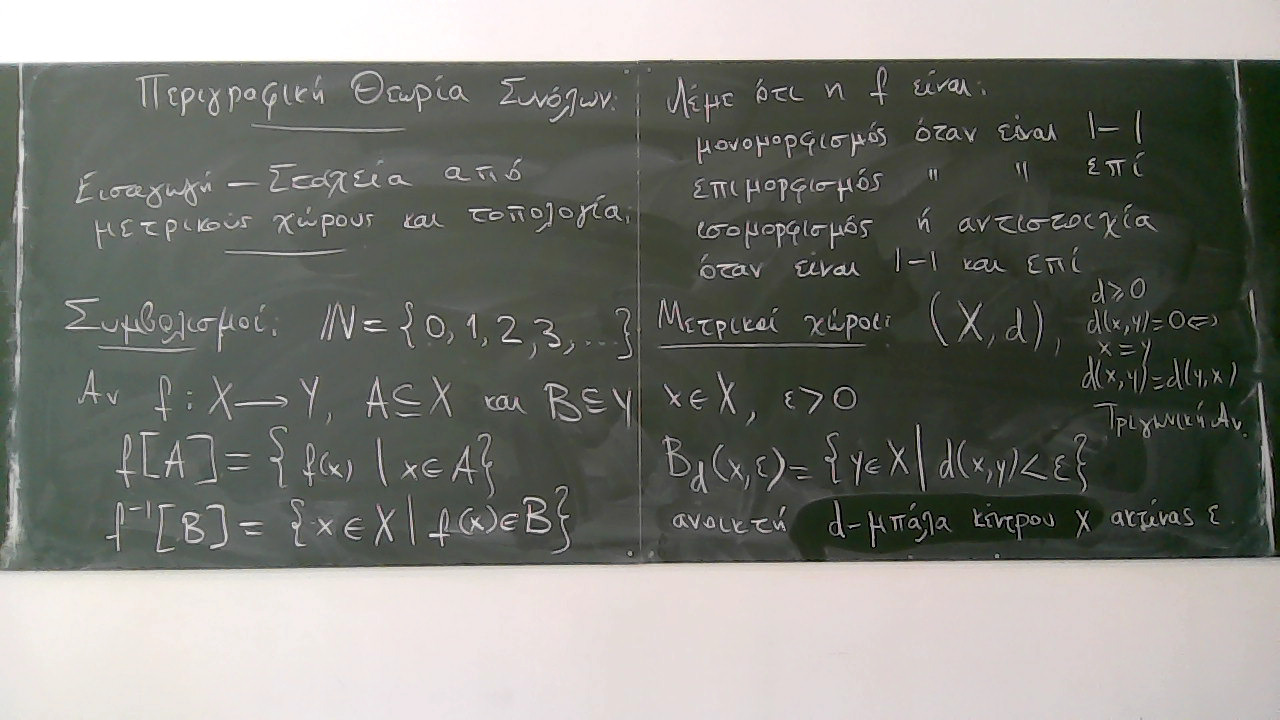 Περιγραφική Θεωρία Συνόλων.
Εισαγωγή – Στοιχεία από
μετρικούς χώρους και τοπολογία.
Συμβολισμοί: ℕ = {0, 1, 2, 3, ...}
Αν f : X → Y, A ⊆ X και B ⊆ Y
f[A] = {f(x) | x ∈ A}
f⁻¹[B] = {x ∈ X | f(x) ∈ B}
Λέμε ότι η f είναι:
μονομορφισμός όταν είναι 1–1
επιμορφισμός " " επί
ισομορφισμός ή αντιστοιχία
όταν είναι 1–1 και επί
Μετρικοί χώροι: (X, d),
d ≥ 0
d(x,y) = 0 ⇔
x = y
d(x,y) = d(y,x)
Τριγωνική Αν.
x ∈ X, ε > 0
B_d(x,ε) = {y ∈ X | d(x,y) < ε}
ανοικτή d-μπάλα κέντρου x ακτίνας ε.